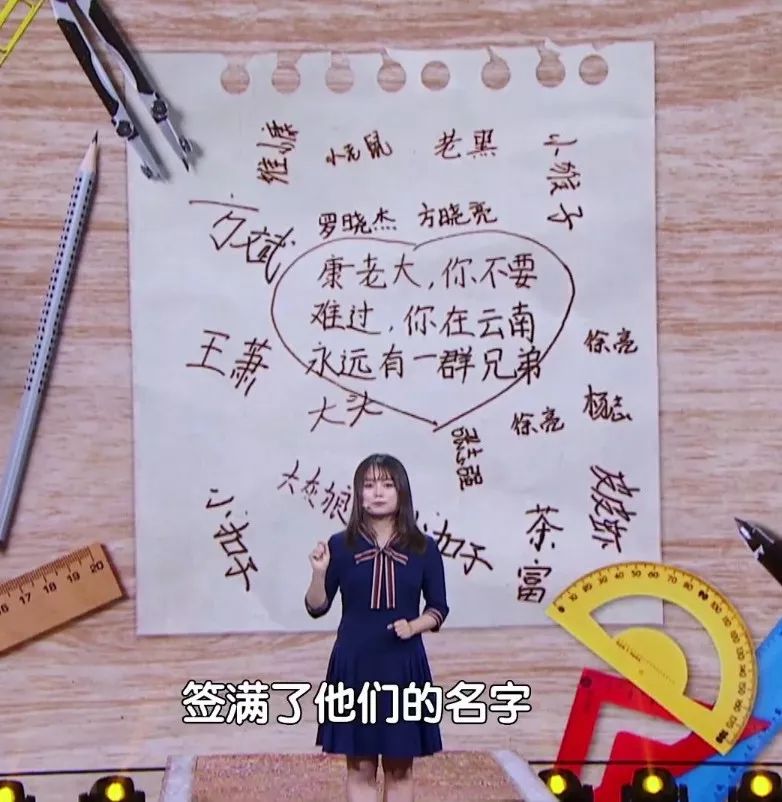 小老鼠
老黑
小猴子
方斌
罗晓杰
方晓亮
康老大,你不要
难过,你在云南
永远有一群兄弟
王萧
徐亮
大头
徐亮
杨志
张志强
大灰狼
皮皮虾
小茄子
小茄子
茶
富
签满了他们的名字
16 17 18 19 20